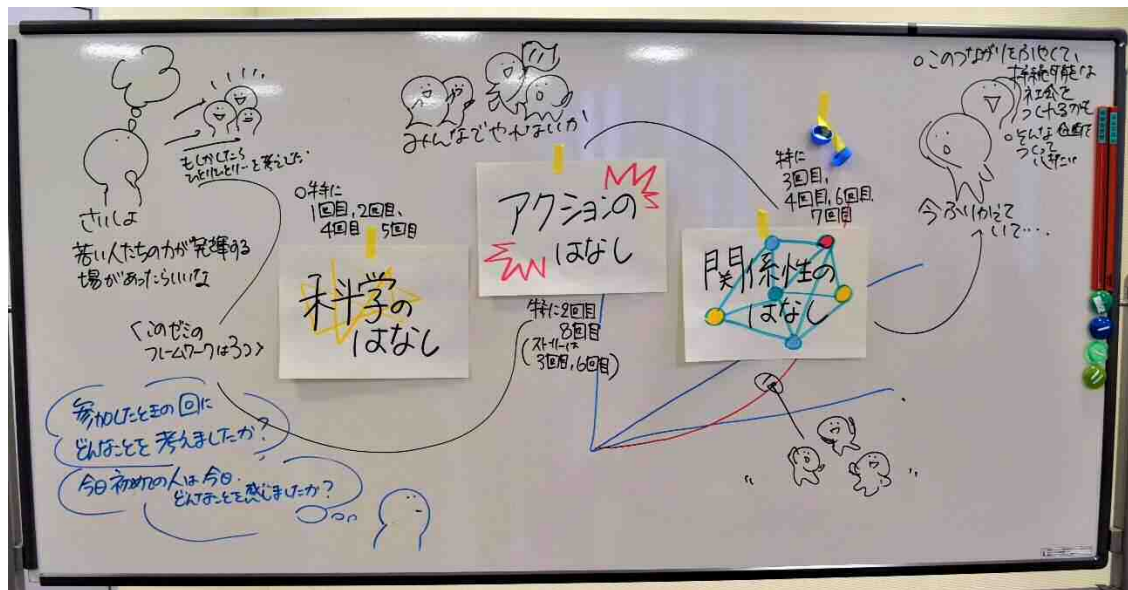 もしかしたら
ひとりひとりと考えした。
さいしょ
若い人たちの力が発揮する
場があったらいいな
〈このゼミの
フレームワークは3つ〉
○特に
1回目、2回目、
4回目 5回目
科学の
はなし
みんなでやんないか
アクションの
はなし
特に2回目
8回目
(ストーリーは
3回目,6回目)
特に
3回目,
4回目,6回目,
7回目
関係性の
はなし
○このつながりをふやして、
持続可能な
社会を
つくれるかも
○そんな
つくって
いきたい
今ふりかえて
いて…。
参加したときの回に
どんなことを考えましたか?
今日初めての人は今日、
どんなことを感じましたか?